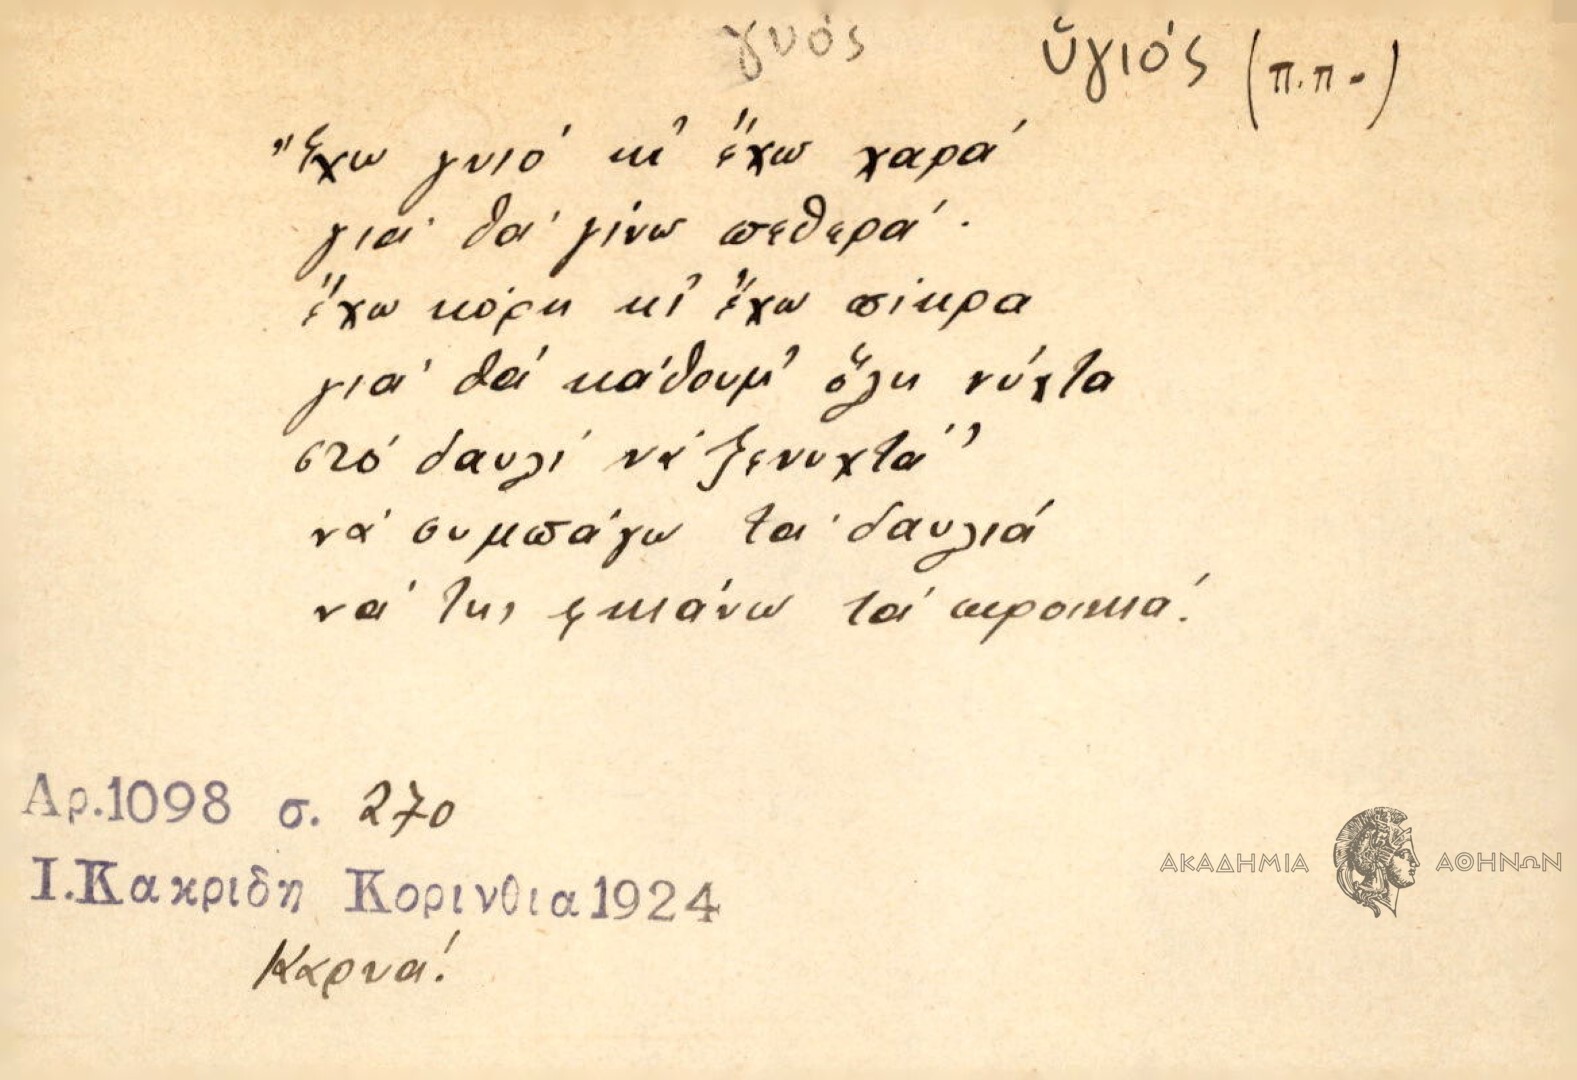 γυός
ὑγιός (π.π.)
"Ἔχω γυιό κι' ἔχω χαρά
γιά θά γίνω πεθερά.
ἔχω κόρη κι' ἔχω πίκρα
γιά θά κάθουμ' ὅλη νύχτα
στό δαυλί νά ξενυχτά"
νά συμπάγω τά δαυλιά
νά της φκιάνω τά προικιά.
Αρ.1098 σ. 270
Ι.Κακριδη Κορινθια1924
Καρυά.
ΑΚΑΔΗΜΙΑ ΑΘΗΝΩΝ